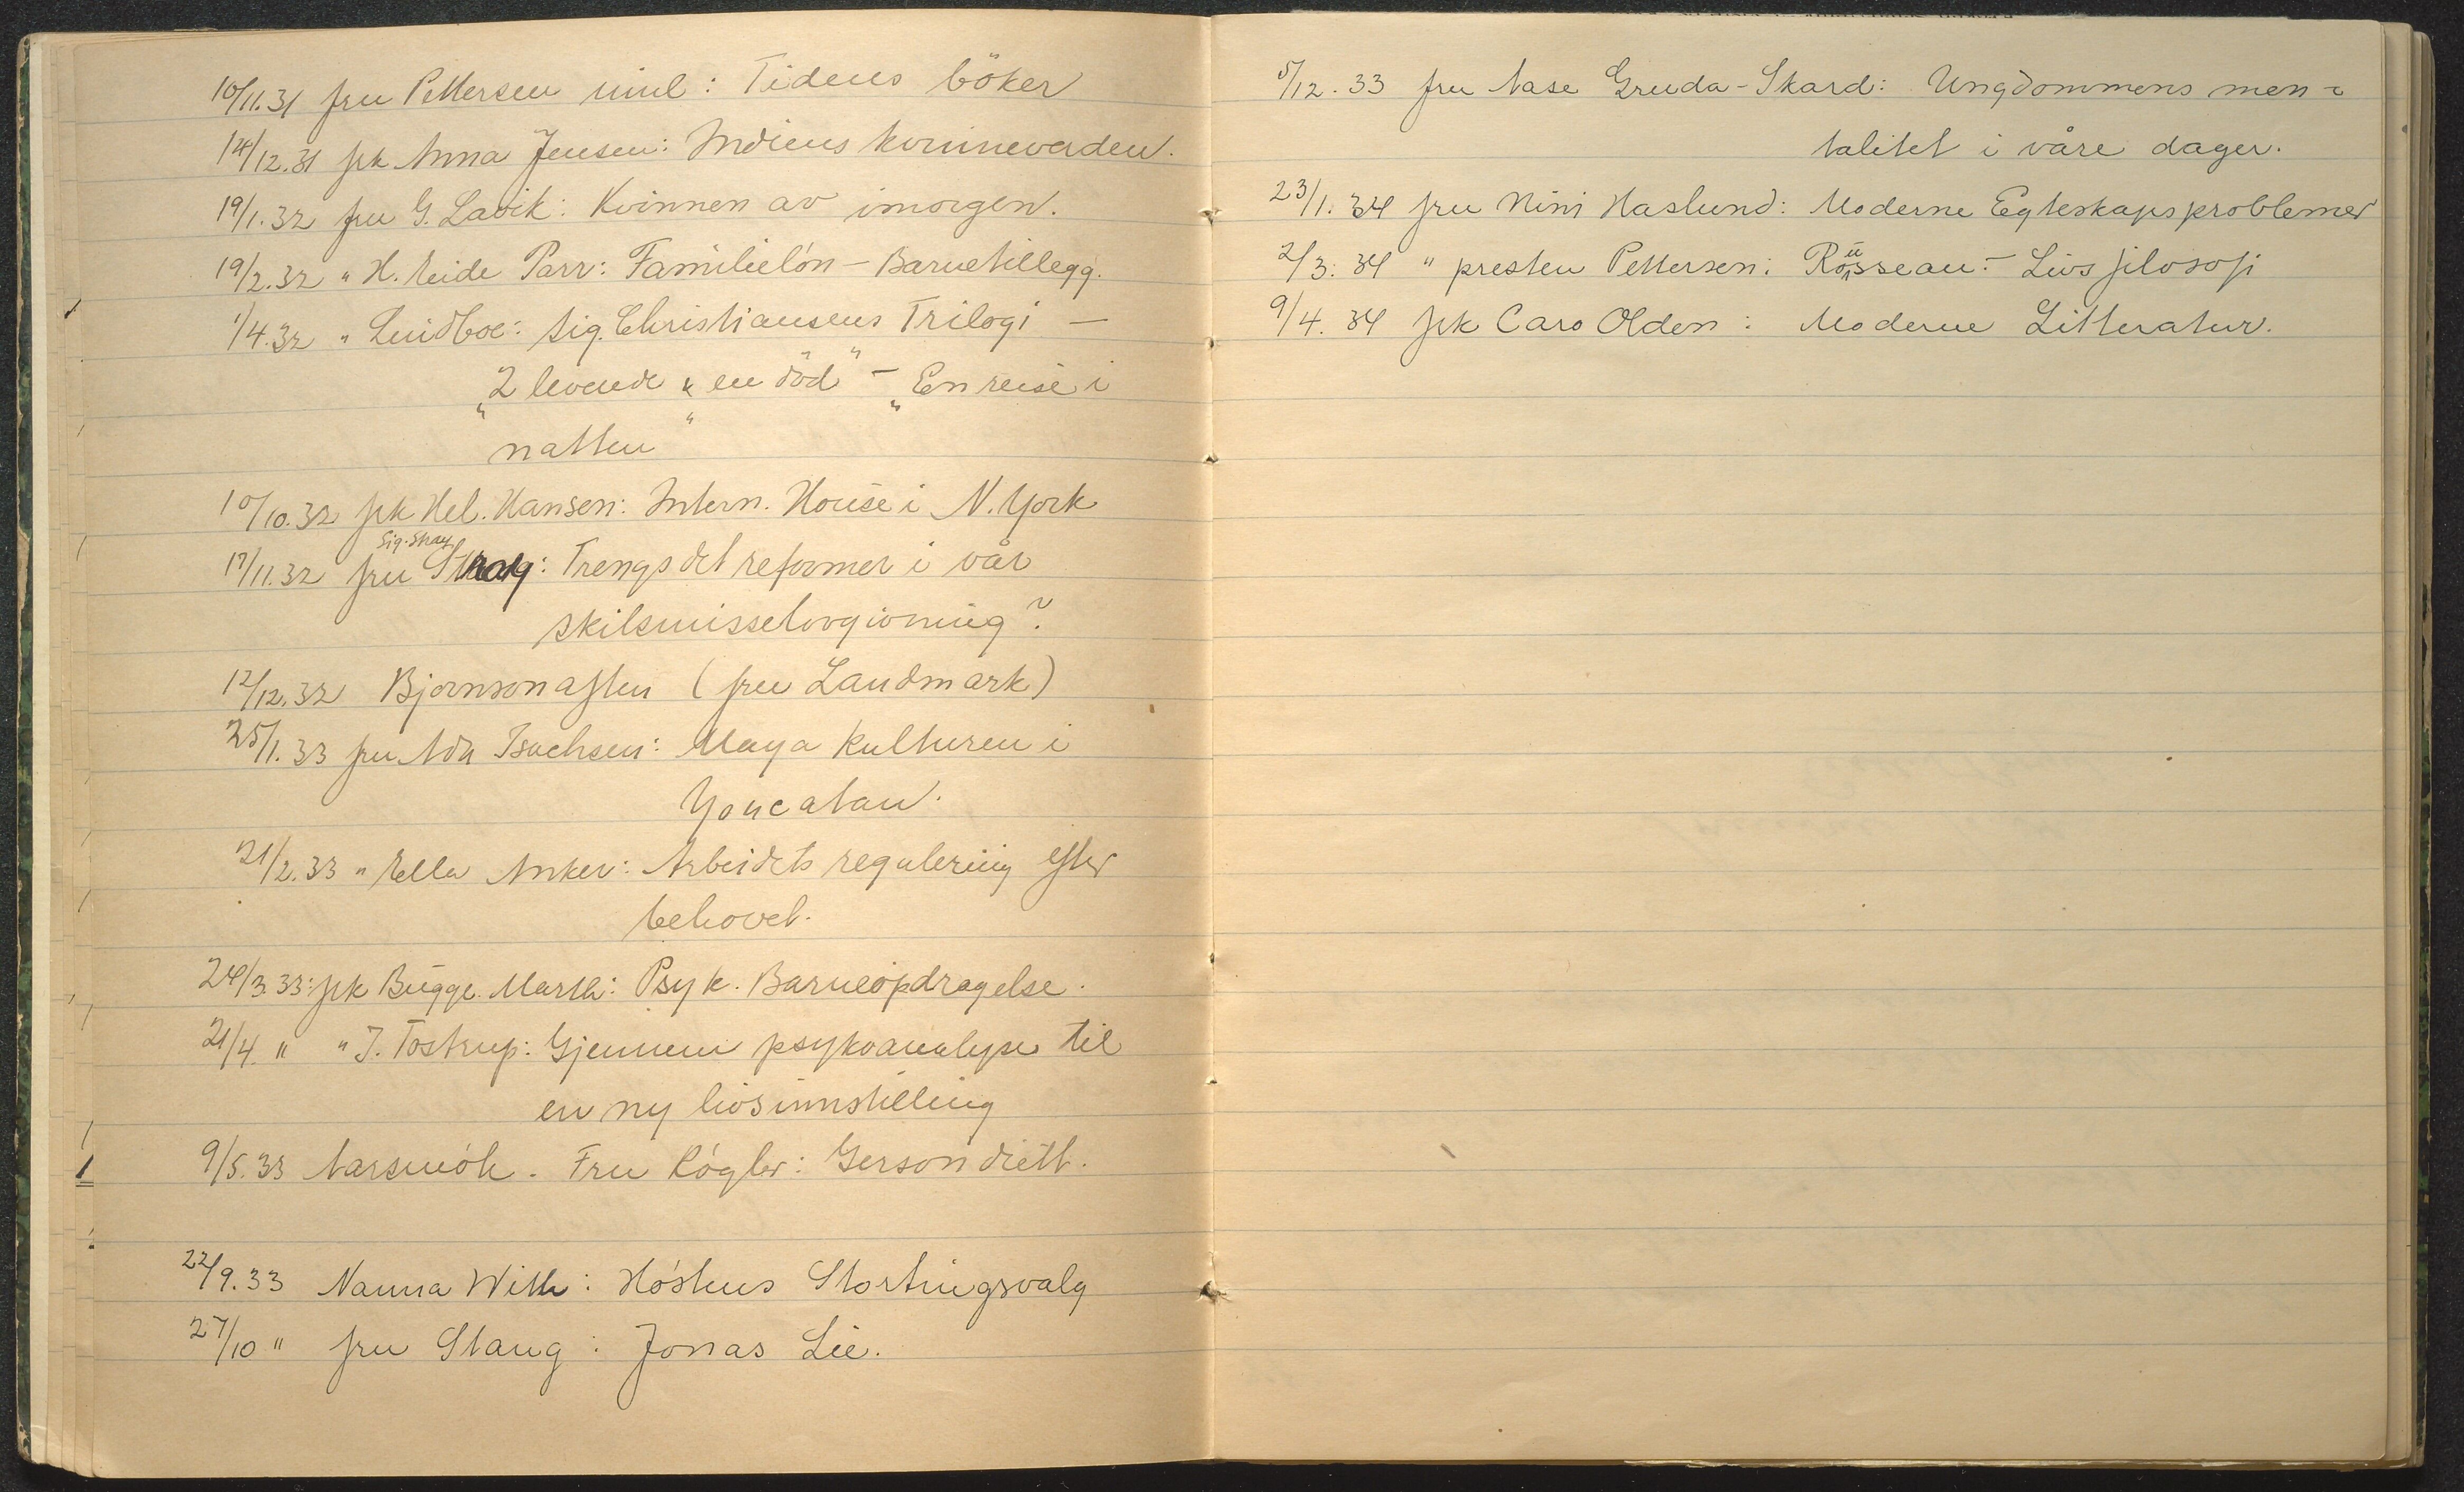 10/11.31 fru Pettersen : Tidens böker
14/12.31 frk Anna Jensen: Indiens kvinneverden.
19/1.32 fru G. Lavik: Kvinnen av imorgen.
19/2.32 " H. Eide Parr: Familielön – Barnetillegg.
1/4.32 " Lindboe: Sig. Christiansens Trilogi –
„2 levende & en död" – „En reise i
natten"
10/10.32 frk Hel. Hansen: Intern. House i N. York
17/11.32 fru : Trengs det reformer i vår
skilsmisselovgivning?
12/12.32 Bjørnsonaften (fru Landmark)
25/1.33 fru Ada Isachsen: Maya kulturen i
Youcatan.
21/2.33 " Ella Anker: Arbeidets regulering efter
behovet.
24/3.33: frk Bugge. Marth: Psyk. Barneopdragelse.
21/4. " " J. Tostrup: Gjennem psykoanalyse til
en ny livsinnstilling
9/5.33 Aarsmöte. Fru Rógler: Gerson diett.
22/9.33 Nanna With: Höstens Stortingsvalg
27/10 " fru Stang: Jonas Lie.
5/12.33 fru Aase Gruda-Skard: Ungdommens men-
talitet i våre dager.
23/1.34 fru Nini Haslund: Moderne Egteskapsproblemer
2/3.34 " presten Pettersen: Rousseau – Livsfilosofi
9/4.34 frk Caro Olden: Moderne Litteratur.